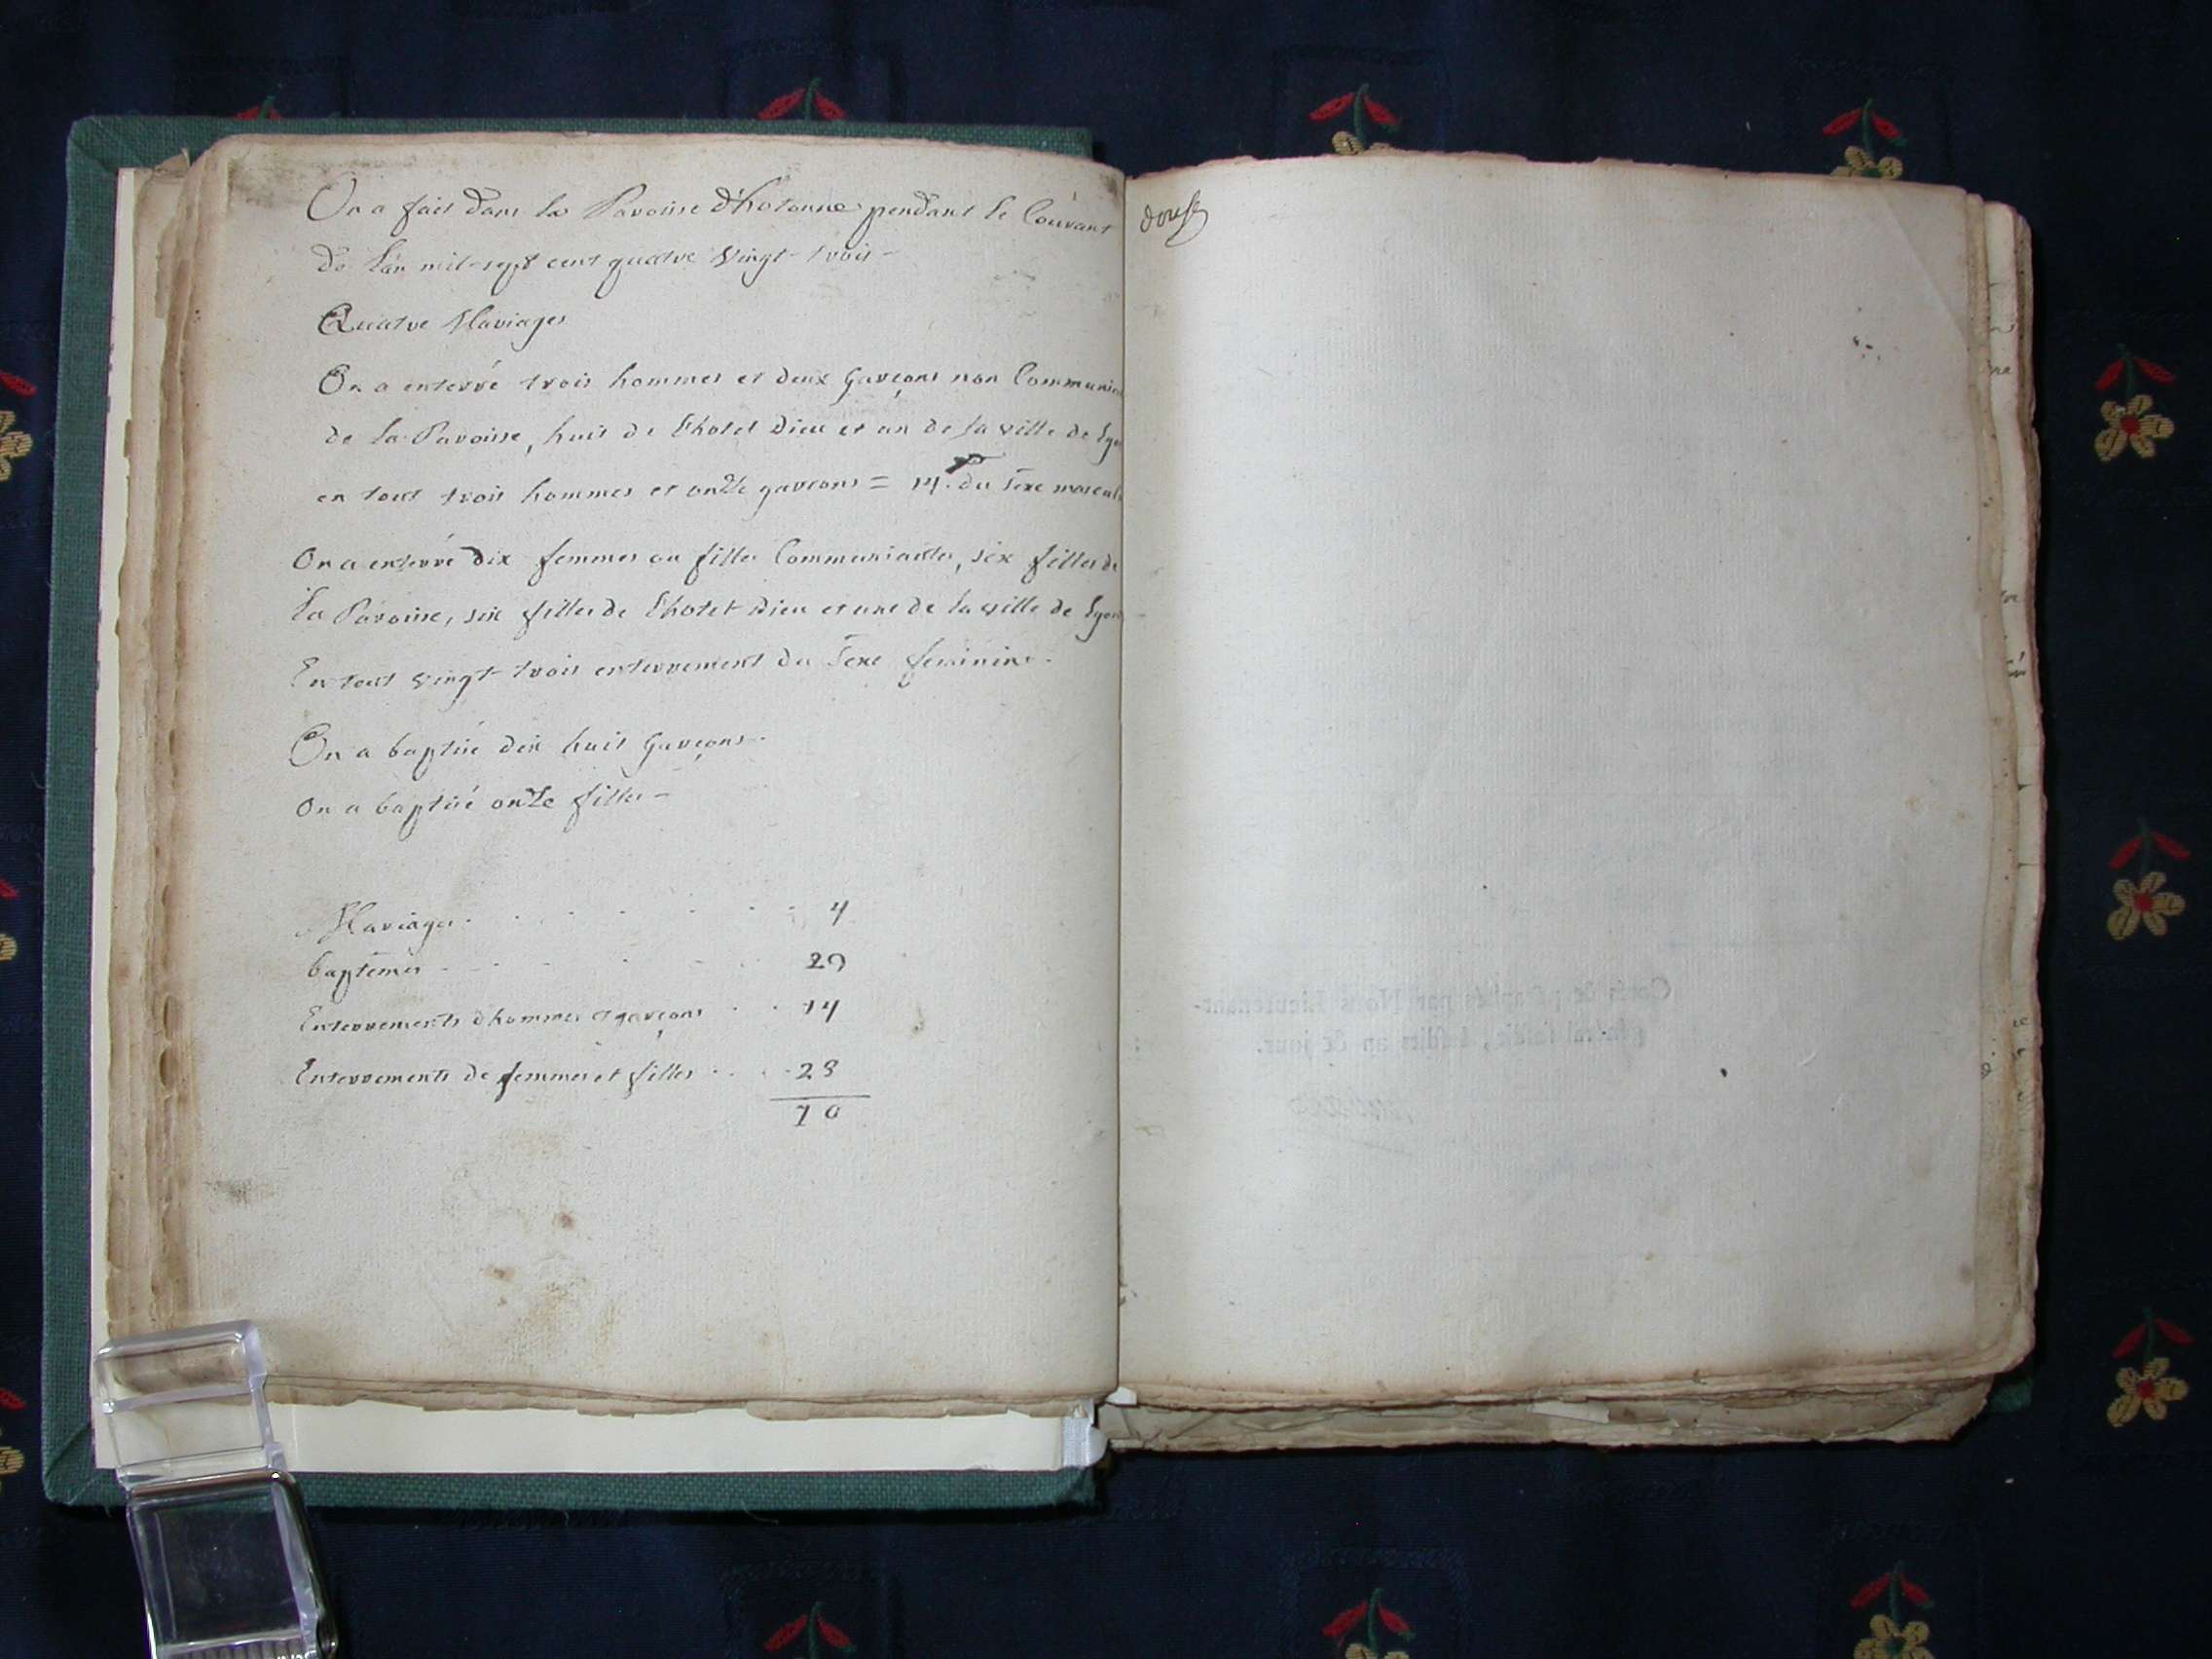 On a fait dans la Paroisse d'hotonne pendant le Courant
de l'an mil-sept cent quatre vingt-trois-
Quatre Mariages
On a enterré trois hommes et deux garçons non Communia
de la Paroisse, huit de l'hotel Dieu et un de la ville de Lyo
en tout trois hommes et onze garcons = 14. du sexe mascul
On a enterré dix femmes ou filles Communiantes, six filles de
la Paroisse, six filles de l'hotel Dieu et une de la ville de Lyon
En tout vingt-trois enterrement du sexe feminine.
On a baptisé dix huit garçons.
On a baptisé onze filles-
Mariages 4
baptemes 29
Enterrements d'hommes et garçons 14
Enterrements de femmes et filles 23
70
douse